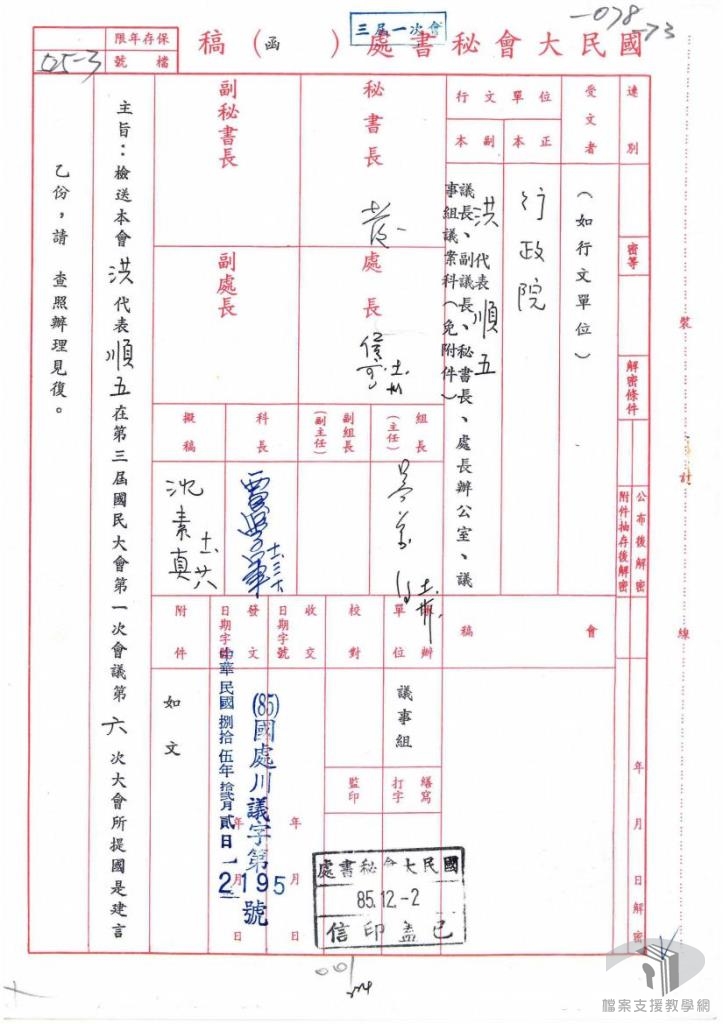 三屆一次會
國民大會秘書處（函）稿
保存年限
檔號
025-3
-078
-73
速別
密等
解密條件
公布後解密
附件抽存後解密
年月日解密
裝
訂
線
受文者
（如行文單位）
行文單位
正本
副本
行政院
洪代表順五
議長、副議長、秘書長、處長辦公室、議
事組議案科（免附件）
會
稿
秘書長
處長
副秘書長
副處長
組長
（主任）
副組長
（副主任）
科長
擬稿
沈素真
承辦單位
議事組
繕寫
打字
校對
監印
收交
日期字號
年月日
發文
日期字號
年月日
(85)國處川議字第2195號
中華民國捌拾伍年拾貳月貳日
附件
如文
國民大會秘書處
85.12.-2
已蓋印信
主旨：檢送本會洪代表順五在第三屆國民大會第一次會議第六次大會所提國是建言
乙份，請　查照辦理見復。
檔案支援教學網